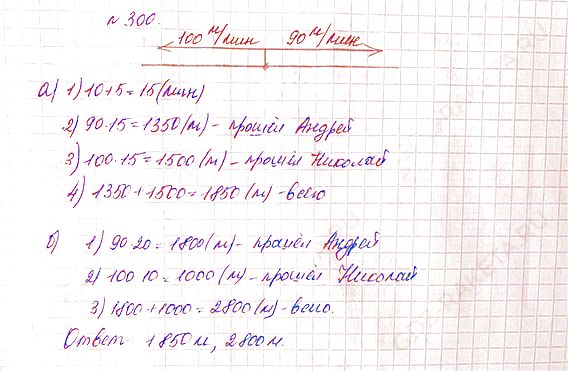 № 300.
100 м/мин 90 м/мин
а) 1) 10+5=15 (мин)
2) 90·15=1350 (м) - прошёл Андрей
3) 100·15=1500 (м) - прошёл Николай
4) 1350+1500=1850 (м) - всего
б) 1) 90·20=1800 (м) - прошёл Андрей
2) 100·10=1000 (м) - прошёл Николай
3) 1800+1000=2800 (м) - всего.
Ответ 1850 м, 2800 м.